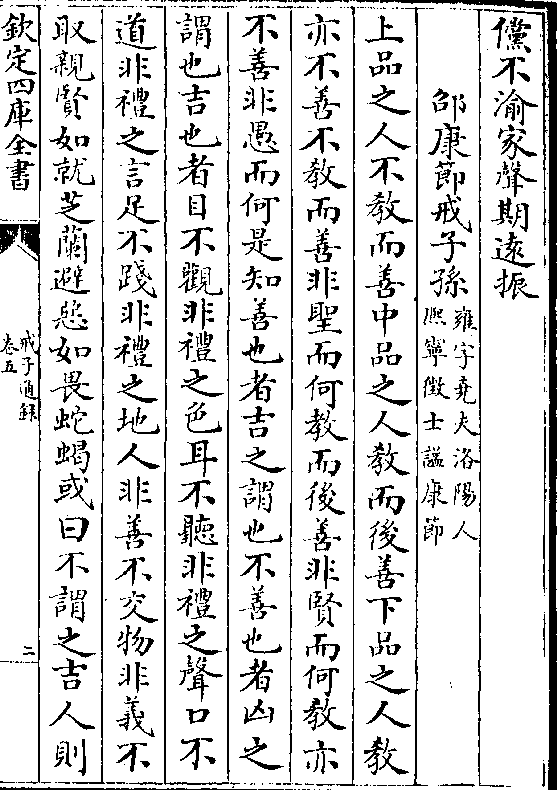 儻不渝家聲期遠振
邵康節戒子孫雍字堯夫洛陽人熙寧徵士諡康節
上品之人不教而善中品之人教而後善下品之人教
亦不善不教而善非聖而何教而後善非賢而何教亦
不善非愚而何是知善也者吉之謂也不善也者凶之
謂也吉也者目不觀非禮之色耳不聽非禮之聲口不
道非禮之言足不踐非禮之地人非善不交物非義不
取親賢如就芝蘭避惡如畏蛇蝎或曰不謂之吉人則
欽定四庫全書
戒子通錄
卷五
二